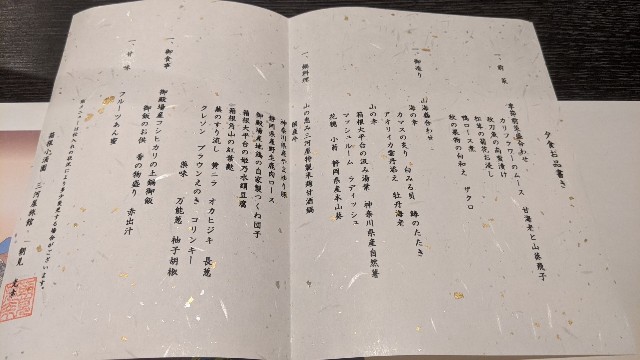 夕食お品書き
一、前菜
季節前菜盛合わせ
カリフラワーのムース 甘海老と山葵飛子
秋刀魚の有馬煮
松茸の菊花お浸し
鴨ロース煮
秋の果物の白和え ザクロ
一、御造り
山海鶴合わせ
海の幸
カマスの炙り 白みる貝 鰺のたたき
アオリイカ雲丹添え 牡丹海老
山の幸
箱根大平台の汲み湯葉 神奈川県産自然薯
マッシュルーム ラディッシュ
花穂 小菊 静岡県産本山葵
一、鍋料理
山の恵み三河屋特製米麹甘酒鍋
静岡県産野生鹿肉ロース
御殿場産地鶏の自家製つくね団子
箱根大平台の姫乃水絹豆腐
箱根角山の紅葉麩
蕪のすり流し 黄ニラ オカヒジキ 長葱
クレソン ブラウンえのき コリンキー
薬味 万能葱 柚子胡椒
一、御食事
御殿場産コシヒカリの土鍋御飯
御飯のお供 香の物盛り 赤出汁
一、甘味
フルーツあん蜜
箱根小涌園 三河屋旅館